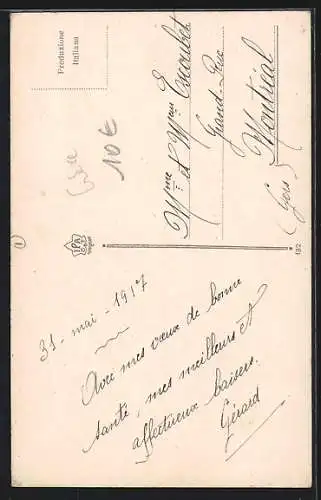 Produzione
Italiana
10€
Mme et Mme Escoubet
Grand-Rue
Montréal
(Gers)
1
IPA
CT
132
31 - mai - 1917
Avec mes vœux de bonne
santé, mes meilleurs et
affectueux baisers.
Gérard